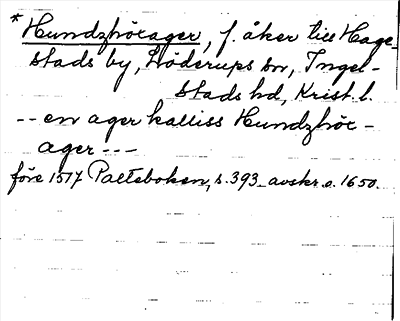 * Hundzhöcager, f. åker till Hage-
stads by, Löderups sn, Ingel-
stads hd, Krist. l.
-- en ager kalliss Hundzhöc-
ager ---
före 1517 Palteboken, s. 393 avskr. o. 1650.